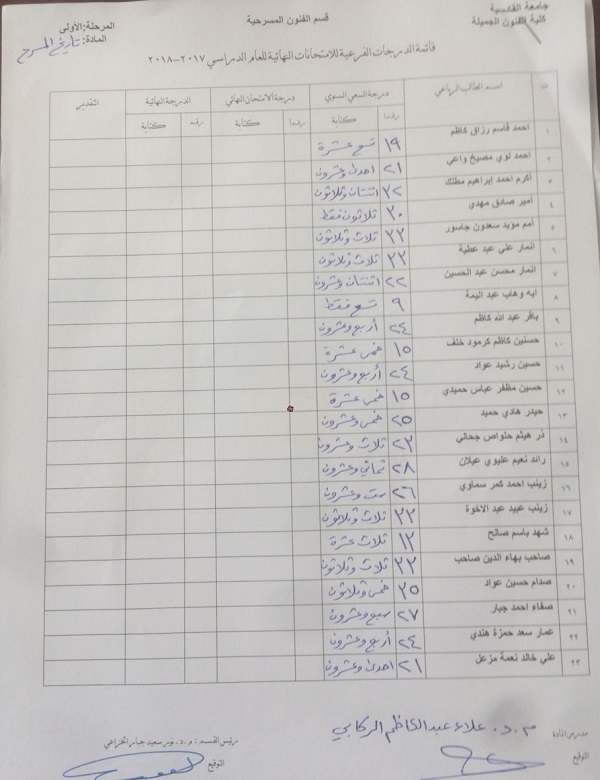 جامعة القادسية
كلية الفنون الجميلة
قسم الفنون المسرحية
المرحلة: الأولى
المادة: تاريخ المسرح
قائمة الدرجات الفرعية للامتحانات النهائية للعام الدراسي ٢٠١٧-٢٠١٨
ت اسم الطالب الرباعي درجة السعي السنوي درجة الامتحان النهائي الدرجة النهائية التقدير
رقما كتابة رقما كتابة رقم كتابة
١ احمد قاسم رزاق كاظم ١٩ تسع عشرة
٢ احمد لؤي مصيخ واعي ٢١ احدى وعشرون
٣ اكرم احمد إبراهيم مطلك ٣٢ اثنتان وثلاثون
٤ أمير صادق مهدي ٣٠ ثلاثون فقط
٥ امم مؤيد سعدون جاسور ٣٣ ثلاث وثلاثون
٦ انمار علي عبد عطية ٣٣ ثلاث وثلاثون
٧ انمار محسن عبد الحسين ٢٢ اثنتان وعشرون
٨ ايه وهاب عبد اليمة ٩ تسع فقط
٩ باقر عبد الله كاظم ٢٤ أربع وعشرون
١٠ حسنين كاظم كرمود خلف ١٥ خمس عشرة
١١ حسين رشيد عواد ٢٤ أربع وعشرون
١٢ حسين مظفر عباس حميدي ١٥ خمس عشرة
١٣ حيدر هادي حميد ٢٥ خمس وعشرون
١٤ ذر هيثم حلواص جحالي ٢٣ ثلاث وعشرون
١٥ رائد نعيم عليوي عيلان ٢٨ ثماني وعشرون
١٦ زينب احمد كمر سماوي ٢٦ ست وعشرون
١٧ زينب عبيد عبد الاخوة ٣٣ ثلاث وثلاثون
١٨ شهد باسم صالح ١٣ ثلاث عشرة
١٩ صاحب بهاء الدين صاحب ٣٣ ثلاث وثلاثون
٢٠ صدام حسين عواد ٣٥ خمس وثلاثون
٢١ صفاء احمد جبار ٢٧ سبع وعشرون
٢٢ عمار سعد حمزة هندي ٢٤ أربع وعشرون
٢٣ علي خالد نعمة مزعل ٢١ احدى وعشرون
مدرس المادة م.د. علاء عبد الكاظم الركابي
التوقيع
رئيس القسم: م.د. نور سعيد جبار الخزاعي
التوقيع